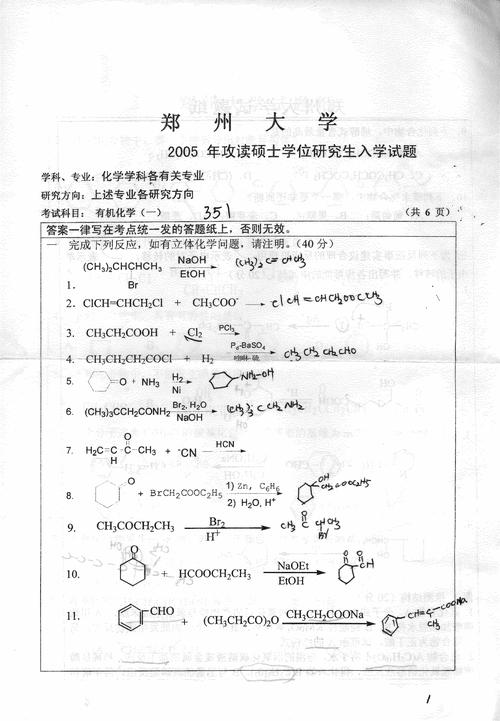 郑 州 大 学
2005 年攻读硕士学位研究生入学试题
学科、专业：化学学科各有关专业
研究方向：上述专业各研究方向
考试科目： 有机化学（一） 351 （共 6 页）
答案一律写在考点统一发的答题纸上，否则无效。
一 完成下列反应，如有立体化学问题，请注明。（40 分）
1. (CH3)2CHCHCH3 Br NaOH EtOH (CH3)2C=CHCH3
2. ClCH=CHCH2Cl + CH3COO-
3. CH3CH2COOH + Cl2 PCl3
4. CH3CH2CH2COCl + H2 Pd-BaSO4 喹啉-硫 CH3CH2CH2CHO
5. O + NH3 H2 Ni
6. (CH3)3CCH2CONH2 Br2, H2O NaOH (CH3)3CCH2NH2
7. H2C=C-C-CH3 H O + -CN HCN
8. O + BrCH2COOC2H5 1) Zn, C6H6 2) H2O, H+ OH CH2COOC2H5
9. CH3COCH2CH3 Br2 H+ CH3 C CHCH3 O Br
10. O + HCOOCH2CH3 NaOEt EtOH O O CH
11. CHO + (CH3CH2CO)2O CH3CH2COONa CH=C-COONa CH3
1